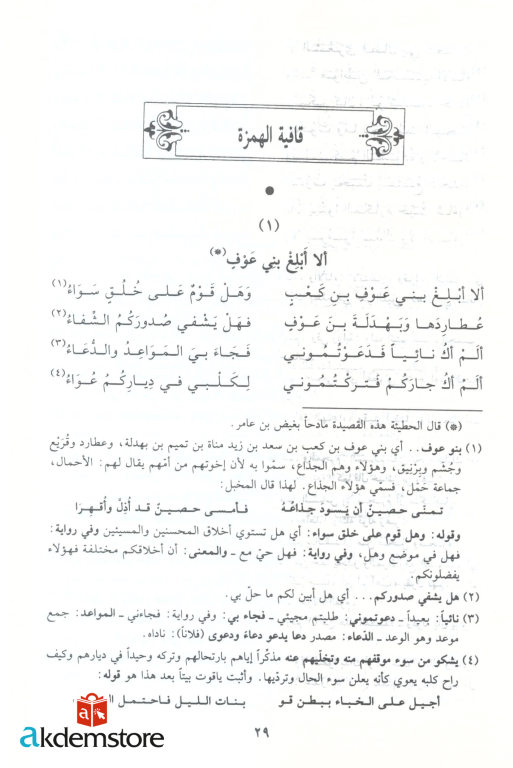 قافية الهمزة
(١)
ألا أَبْلِغْ بني عَوْفٍ(*)
ألا أبْلِغْ بـني عَوْفٍ بـنَ كَعْبٍ وَهَلْ قَوْمٌ عَـلـى خُـلُـقٍ سَـوَاءُ(١)
عُـطـارِدَهـا وَبَـهْـدَلَـةَ بـنَ عَوْفٍ فَهَلْ يَـشْـفـي صُدورَكُـمُ الـشِّفاءُ(٢)
ألَـمْ أكُ نـائـيـاً فَـدَعَـوْتُـمُـوني فَـجَـاءَ بـيَ الـمَـوَاعِـدُ والـدُّعَاءُ(٣)
ألَـمْ أكُ جـارَكُـمْ فَـتـركْـتُـمُـوني لِـكَـلْـبـي فـي دِيـارِكُـمُ عُـوَاءُ(٤)
(*) قال الحطيئة هذه القصيدة مادحاً بغيض بن عامر.
(١) بنو عوف.. أي بني عوف بن كعب بن سعد بن زيد مناة بن تميم بن بهدلة، وعطارد وقُرَيْع
وجُشَم وبِرْنِيق، وهؤلاء وهم الجذاع، سمّوا به لأن إخوتهم من أمّهم يقال لهم: الأحمال،
جماعة حَمَل، فسمّي هؤلاء الجذاع. لهذا قال المخبل:
تـمـنـى حـصـيـنٌ أن يـسـودَ جـذاعَـهُ فـأمـسـى حـصـيـنٌ قـد أُذِلَّ وأقـهـرا
وقوله: وهل قوم على خلق سواء: أي هل تستوي أخلاق المحسنين والمسيئين وفي رواية:
فهل في موضع وهل، وفي رواية: فهل حيّ مع ـ والمعنى: أن أخلاقكم مختلفة فهؤلاء
يفضلونكم.
(٢) هل يشفي صدوركم... أي هل أبين لكم ما حلّ بي.
(٣) نائياً: بعيداً ـ دعوتموني: طلبتم مجيئي ـ فجاء بي: وفي رواية: فجاءني ـ المواعد: جمع
موعد وهو الوعد ـ الدُّعاء: مصدر دعا يدعو دعاءً ودعوى (فلاناً): ناداه.
(٤) يشكو من سوء موقفهم منه وتخلّيهم عنه مذكّراً إياهم بارتحالهم وتركه وحيداً في ديارهم وكيف
راح كلبه يعوي كأنه يعلن سوء الحال وترديها. وأثبت ياقوت بيتاً بعد هذا هو قوله:
أجـيـل عـلـى الـخـبـاء بـبـطـن قـو بـنـات الـلـيـل فـاحـتـمـل
٢٩
akdemstore